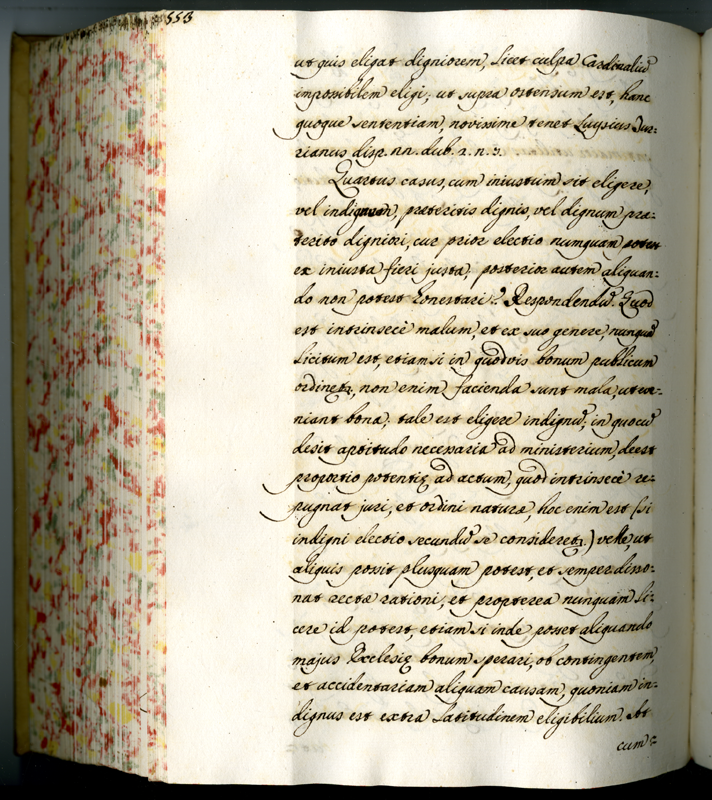 553
ut quis eligat digniorem, licet culpa Cardinaliũ
impossibilem eligi; ut supra ostensum est, hanc
quoque sententiam, novissime tenet Luysius Tur-
rianus disp. nn. dub. 2. n. 3.
Quartus casus, cum iniustum sit eligere,
vel indignum, preteritis dignis, vel dignum præ-
terito digniori, cur prior electio numquam potest
ex iniusta fieri justa, posterior autem aliquan-
do non potest honestari? Respondendũ. Quod
est intrinsecè malum, et ex suo genere, nunquã
licitum est, etiam si in quodvis bonum publicum
ordinetr, non enim facienda sunt mala, ut eve-
niant bona; tale est eligere indignũ; in quo cũ
desit aptitudo necessaria ad ministerium, deest
proportio potentię ad actum, quod intrinsecè re-
pugnat juri, et ordini naturæ, hoc enim est (si
indigni electio secundũ se consideretr.) velle, ut
aliquis possit plusquam potest, et semper disso-
nat rectæ rationi, et propterea nunquam li-
cere id potest, etiam si inde posset aliquando
majus Ecclesię bonum sperari, ob contingentem,
et accidentariam aliquam causam, quoniam in-
dignus est extra latitudinem eligibilium. At
cum